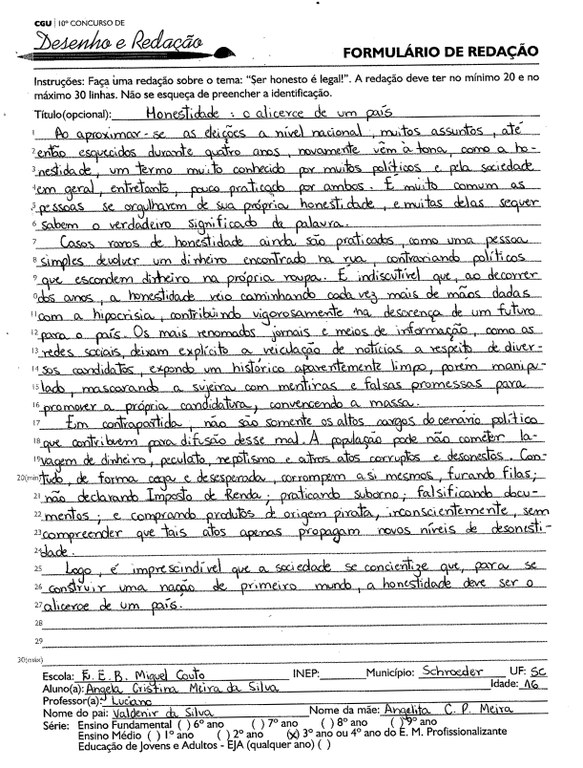 CGU | 10º CONCURSO DE
Desenho e Redação
FORMULÁRIO DE REDAÇÃO
Instruções: Faça uma redação sobre o tema: "Ser honesto é legal!". A redação deve ter no mínimo 20 e no
máximo 30 linhas. Não se esqueça de preencher a identificação.
Título(opcional): Honestidade: o alicerce de um país
1 Ao aproximar-se as eleições a nível nacional, muitos assuntos, até
2 então esquecidos durante quatro anos, novamente vêm à tona, como a ho-
3 nestidade, um termo muito conhecido por muitos políticos e pela sociedade
4 em geral, entretanto, pouco praticado por ambos. É muito comum as
5 pessoas se orgulharem de sua própria honestidade, e muitas delas sequer
6 sabem o verdadeiro significado da palavra.
7 Casos raros de honestidade ainda são praticados, como uma pessoa
8 simples devolver um dinheiro encontrado na rua, contrariando políticos
9 que escondem dinheiro na própria roupa. É indiscutível que, ao decorrer
10 dos anos, a honestidade veio caminhando cada vez mais de mãos dadas
11 com a hipocrisia, contribuindo vigorosamente na descrença de um futuro
12 para o país. Os mais renomados jornais e meios de informação, como as
13 redes sociais, deixam explícito a veiculação de notícias a respeito de diver-
14 sos candidatos, expondo um histórico aparentemente limpo, porém manipu-
15 lado, mascarando a sujeira com mentiras e falsas promessas para
16 promover a própria candidatura, convencendo a massa.
17 Em contrapartida, não são somente os altos cargos do cenário político
18 que contribuem para difusão desse mal. A população pode não cometer la-
19 vagem de dinheiro, peculato, nepotismo e outros atos corruptos e desonestos. Con-
20(min) tudo, de forma cega e desesperada, corrompem a si mesmos, furando filas;
21 não declarando Imposto de Renda; praticando suborno; falsificando docu-
22 mentos; e comprando produtos de origem pirata, inconscientemente, sem
23 compreender que tais atos apenas propagam novos níveis de desonesti-
24 dade.
25 Logo, é imprescindível que a sociedade se concientize que, para se
26 construir uma nação de primeiro mundo, a honestidade deve ser o
27 alicerce de um país.
28
29
30(máx)
Escola: E.E.B. Miguel Couto INEP: Município: Schroeder UF: SC
Aluno(a): Angela Cristina Meira da Silva Idade: 16
Professor(a): Luciano
Nome do pai: Valdenir da Silva Nome da mãe: Angelita C. P. Meira
Série: Ensino Fundamental ( ) 6º ano ( ) 7º ano ( ) 8º ano ( ) 9º ano
Ensino Médio ( ) 1º ano ( ) 2º ano (x) 3º ano ou 4º ano do E. M. Profissionalizante
Educação de Jovens e Adultos - EJA (qualquer ano) ( )